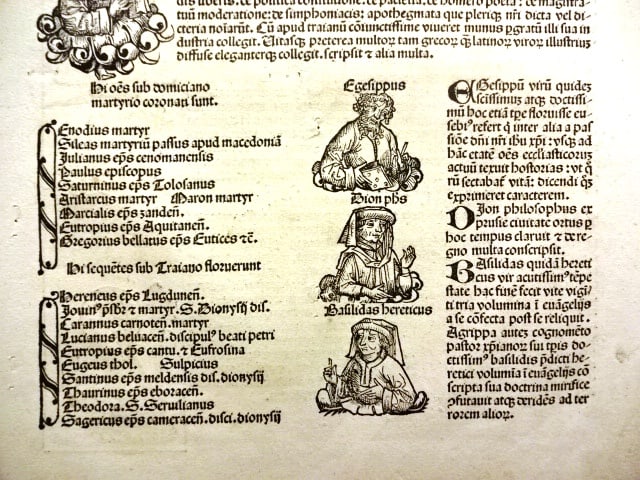 dis liberis: de politica constitutione: de patientia: de homero poeta: de magistra-
tuũ moderatione: de simphoniacis: apothegmata que pleriq̃ nr̃i dicta vel di
cteria noĩarũt. Cũ apud traianũ coniunctissime viueret munus p̱gratũ illi sua in
dustria collegit. Uitasq̃ preterea multor̃ tam grecor̃ q̃ latinor̃ viror̃ illustriũ
diffuse eleganterq̃ collegit. scripsit ⁊ alia multa.
Hi oẽs sub domiciano
martyrio coronati sunt.
Enodius martyr
Sileas martyriũ passus apud macedoniã
Julianus ep̃s cenomanensis
Paulus episcopus
Saturninus ep̃s Tolosanus
Aristarcus martyr Maron martyr
Marcialis ep̃s
Eutropius ep̃s Aquitaneñ.
Gregorius bellatus ep̃s Eutices ⁊c̃.
Hi sequẽtes sub Traiano floruerunt
Hereneus ep̃s Lugduneñ.
Jouinꝰ p̃sbr̃ ⁊ martyr. S. Dionysij dis.
Carannus carnoteñ. martyr
Lucianus beluaceñ. discipulꝰ beati petri
Eutropius ep̃s cantu. ⁊ Eufrosina
Eugeus thol. Sulpicius
Santinus ep̃s meldensis dis. dionysij
Thaurinus ep̃s eboraceñ.
Theodora. S. Seruilianus
Sagericus ep̃s cameraceñ. disci. dionysij
Egesippus
Dion phs
Basilidas hereticus
EGesippũ virũ quidez
scissimuz atq̃ doctissi-
mũ hoc etiã tp̃e floruisse eu
sebiꝰ refert q̃ inter alia a pas
siõe dñi nr̃i ihu xp̃i: vsq̃ ad
hãc etatẽ oẽs eccl̃iasticoruz
actuũ texuit hystorias: vt q̃
rũ sectabat̃ vitã: dicendi q̃s
exprimeret caracterem.
DJon philosophus ex
prusie ciuitate ortus p̱
hoc tempus claruit ⁊ de re-
gno multa conscripsit.
BAsilidas quidã hereti
cus vir acutissimꝰ tẽpe
state hac finẽ fecit vite vigĩ
ti tria volumina ĩ euãgelijs
a se cõfecta post se reliquit.
Agrippa autez cognomẽto
pastor xp̃ianor̃ sui tp̃is do-
ctissimꝰ basilidis p̃dicti he
retici volumĩa ĩ euãgelijs cõ
scripta sua doctrina mirifice
ꝯfutauit atq̃ deridẽs ad ter
rorem alior̃.